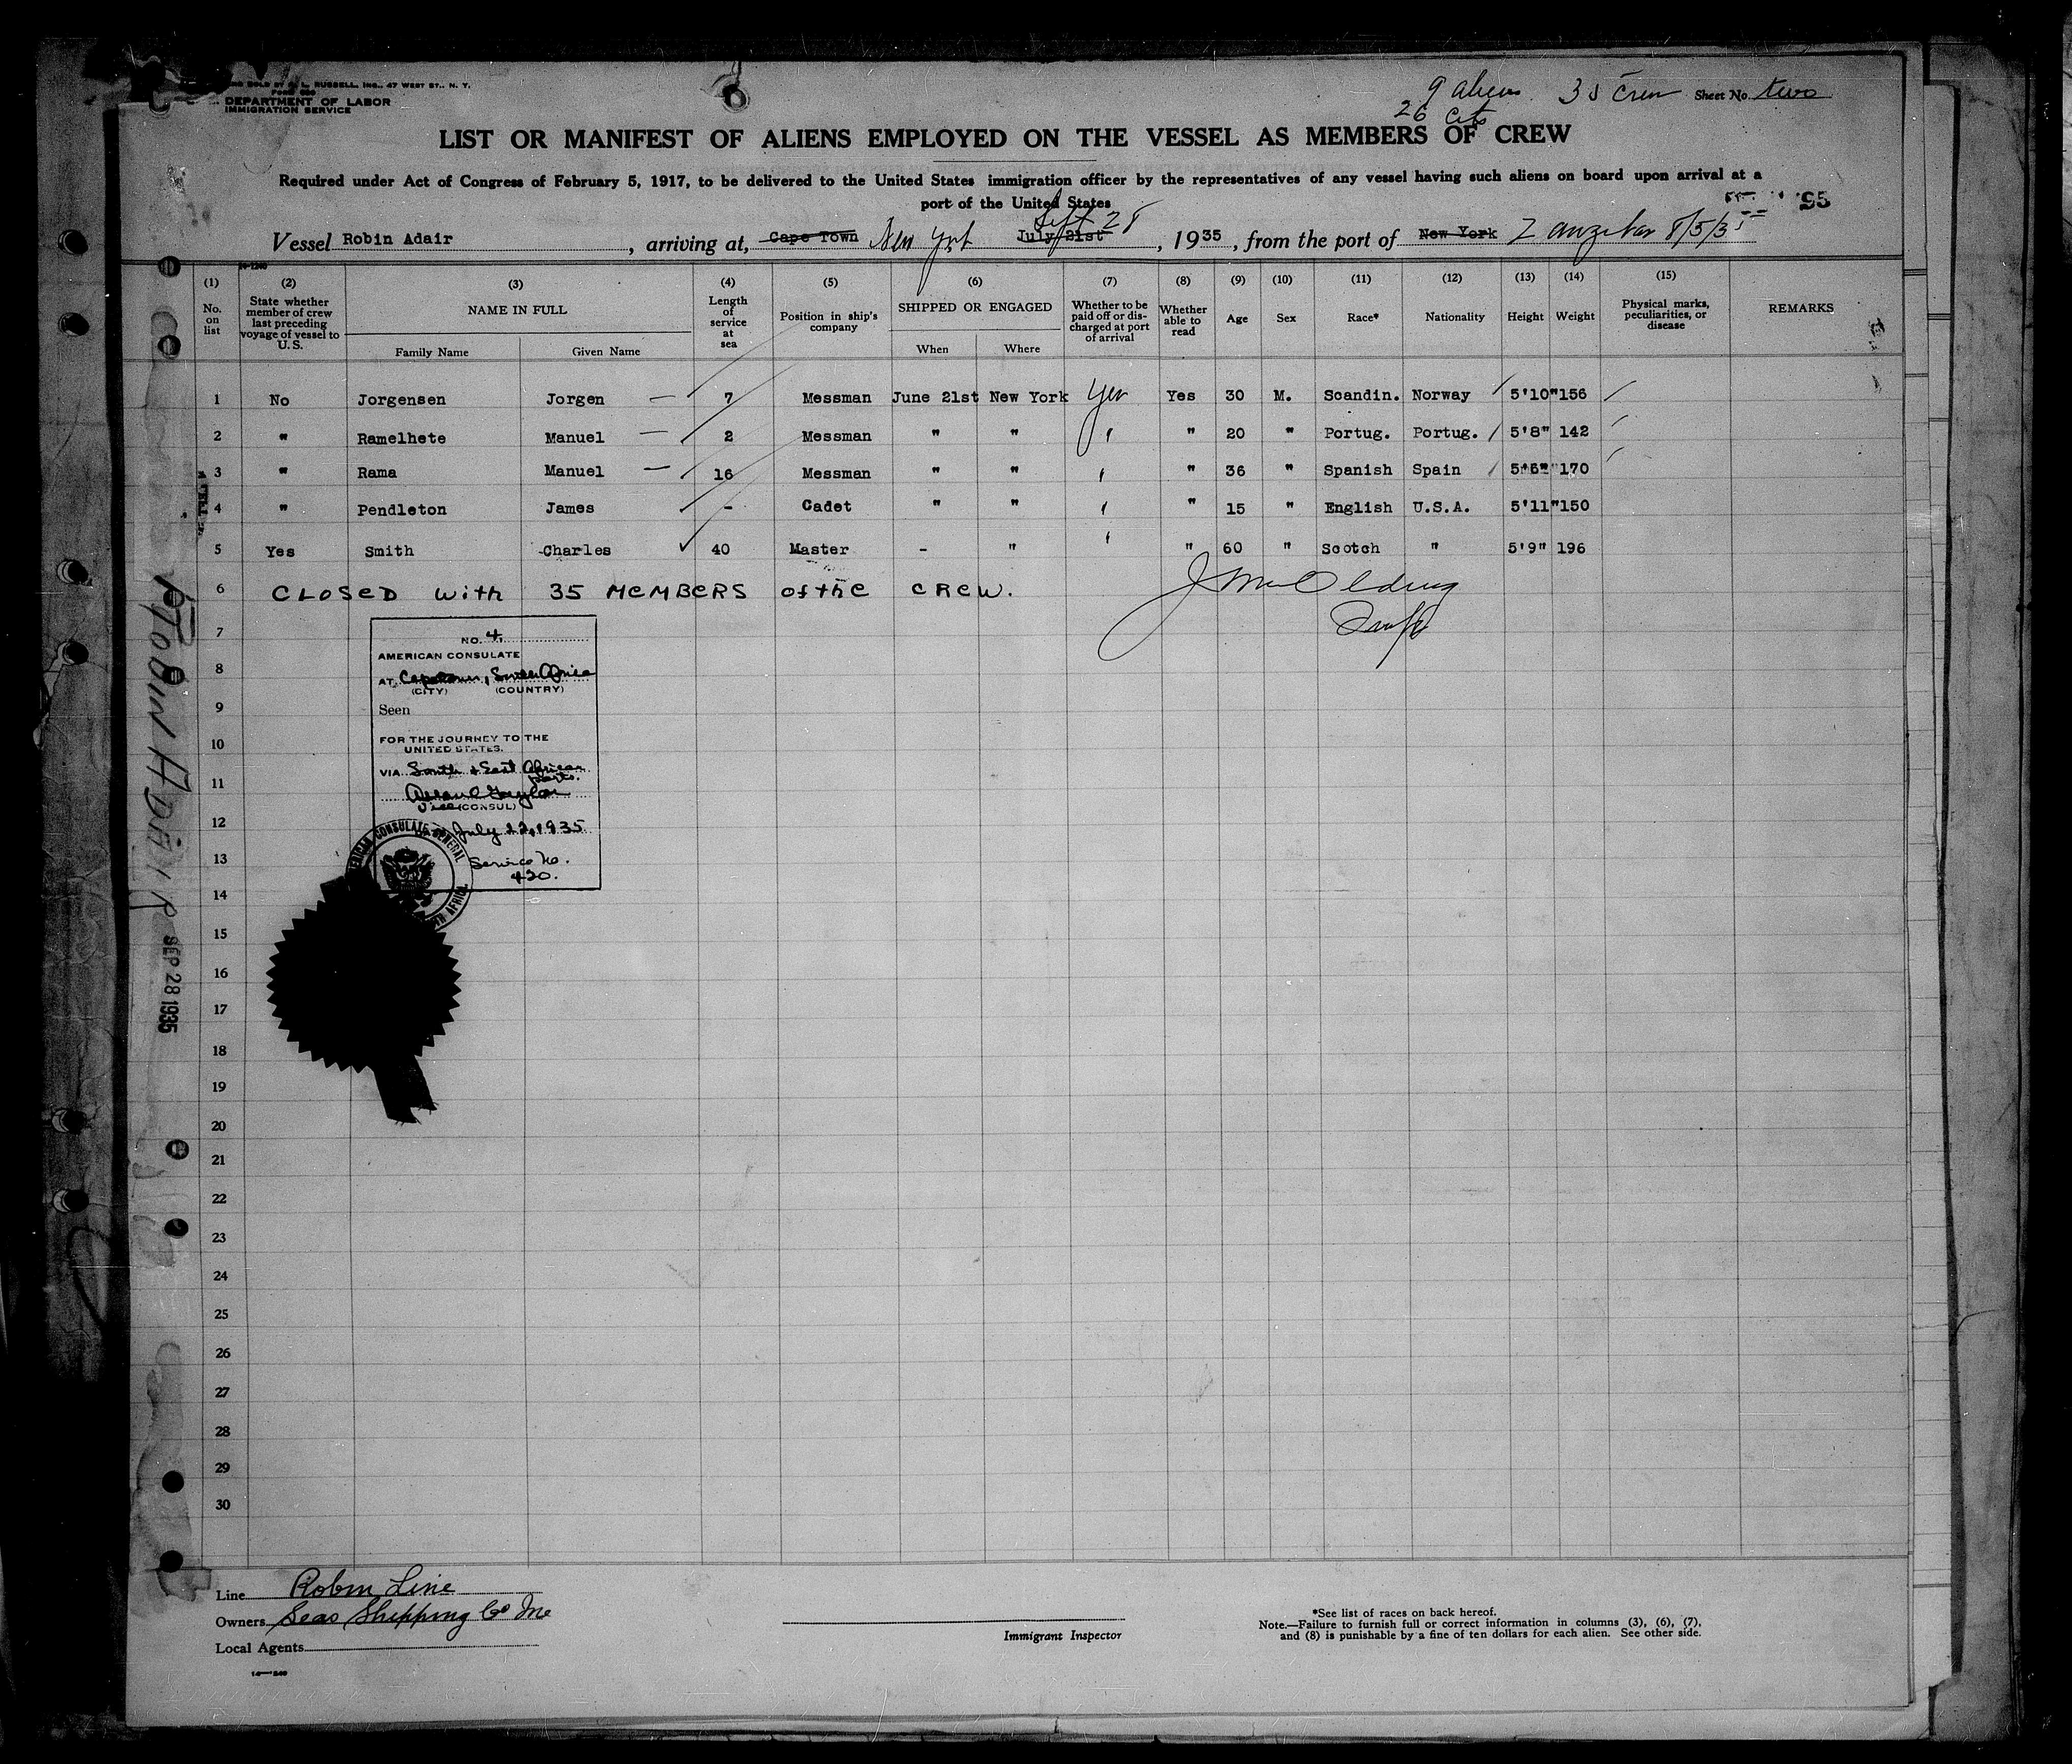 SOLD BY RUSSELL, INC., 47 WEST ST., N. Y.
DEPARTMENT OF LABOR
IMMIGRATION SERVICE
9 aliens 35 crew Sheet No. two
26 cits
LIST OR MANIFEST OF ALIENS EMPLOYED ON THE VESSEL AS MEMBERS OF CREW
Required under Act of Congress of February 5, 1917, to be delivered to the United States immigration officer by the representatives of any vessel having such aliens on board upon arrival at a
port of the United States
Sept 28
Vessel Robin Adair, arriving at, Cape Town New York July 21st, 1935, from the port of New York Zanzibar 8/5/35
(1) (2) (3) (4) (5) (6) (7) (8) (9) (10) (11) (12) (13) (14) (15)
No. on list State whether member of crew last preceding voyage of vessel to U. S. NAME IN FULL Family Name Given Name Length of service at sea Position in ship's company SHIPPED OR ENGAGED When Where Whether to be paid off or discharged at port of arrival Whether able to read Age Sex Race* Nationality Height Weight Physical marks, peculiarities, or disease REMARKS
1 No Jorgensen Jorgen — 7 Messman June 21st New York Yes Yes 30 M. Scandin. Norway 5'10" 156
2 " Ramelhete Manuel — 2 Messman " " " " 20 " Portug. Portug. 5'8" 142
3 " Rama Manuel — 16 Messman " " " " 36 " Spanish Spain 5'6" 170
4 " Pendleton James - Cadet " " " " 15 " English U.S.A. 5'11" 150
5 Yes Smith Charles 40 Master - " " " 60 " Scotch " 5'9" 196
6 CLOSED with 35 MEMBERS of the CREW.
7
NO. 4
AMERICAN CONSULATE
8
AT Capetown, South Africa
(CITY) (COUNTRY)
9
Seen
10
FOR THE JOURNEY TO THE
UNITED STATES.
11
VIA South & East African
ports.
Vice (CONSUL)
12
July 22, 1935
13
Service No.
420.
14
15
16
17
18
19
20
21
22
23
24
25
26
27
28
29
30
ROBIN ADAIR
SEP 28 1935
Line Robin Line
Owners Seas Shipping Co Inc
Local Agents
Immigrant Inspector
*See list of races on back hereof.
Note.—Failure to furnish full or correct information in columns (3), (6), (7),
and (8) is punishable by a fine of ten dollars for each alien. See other side.